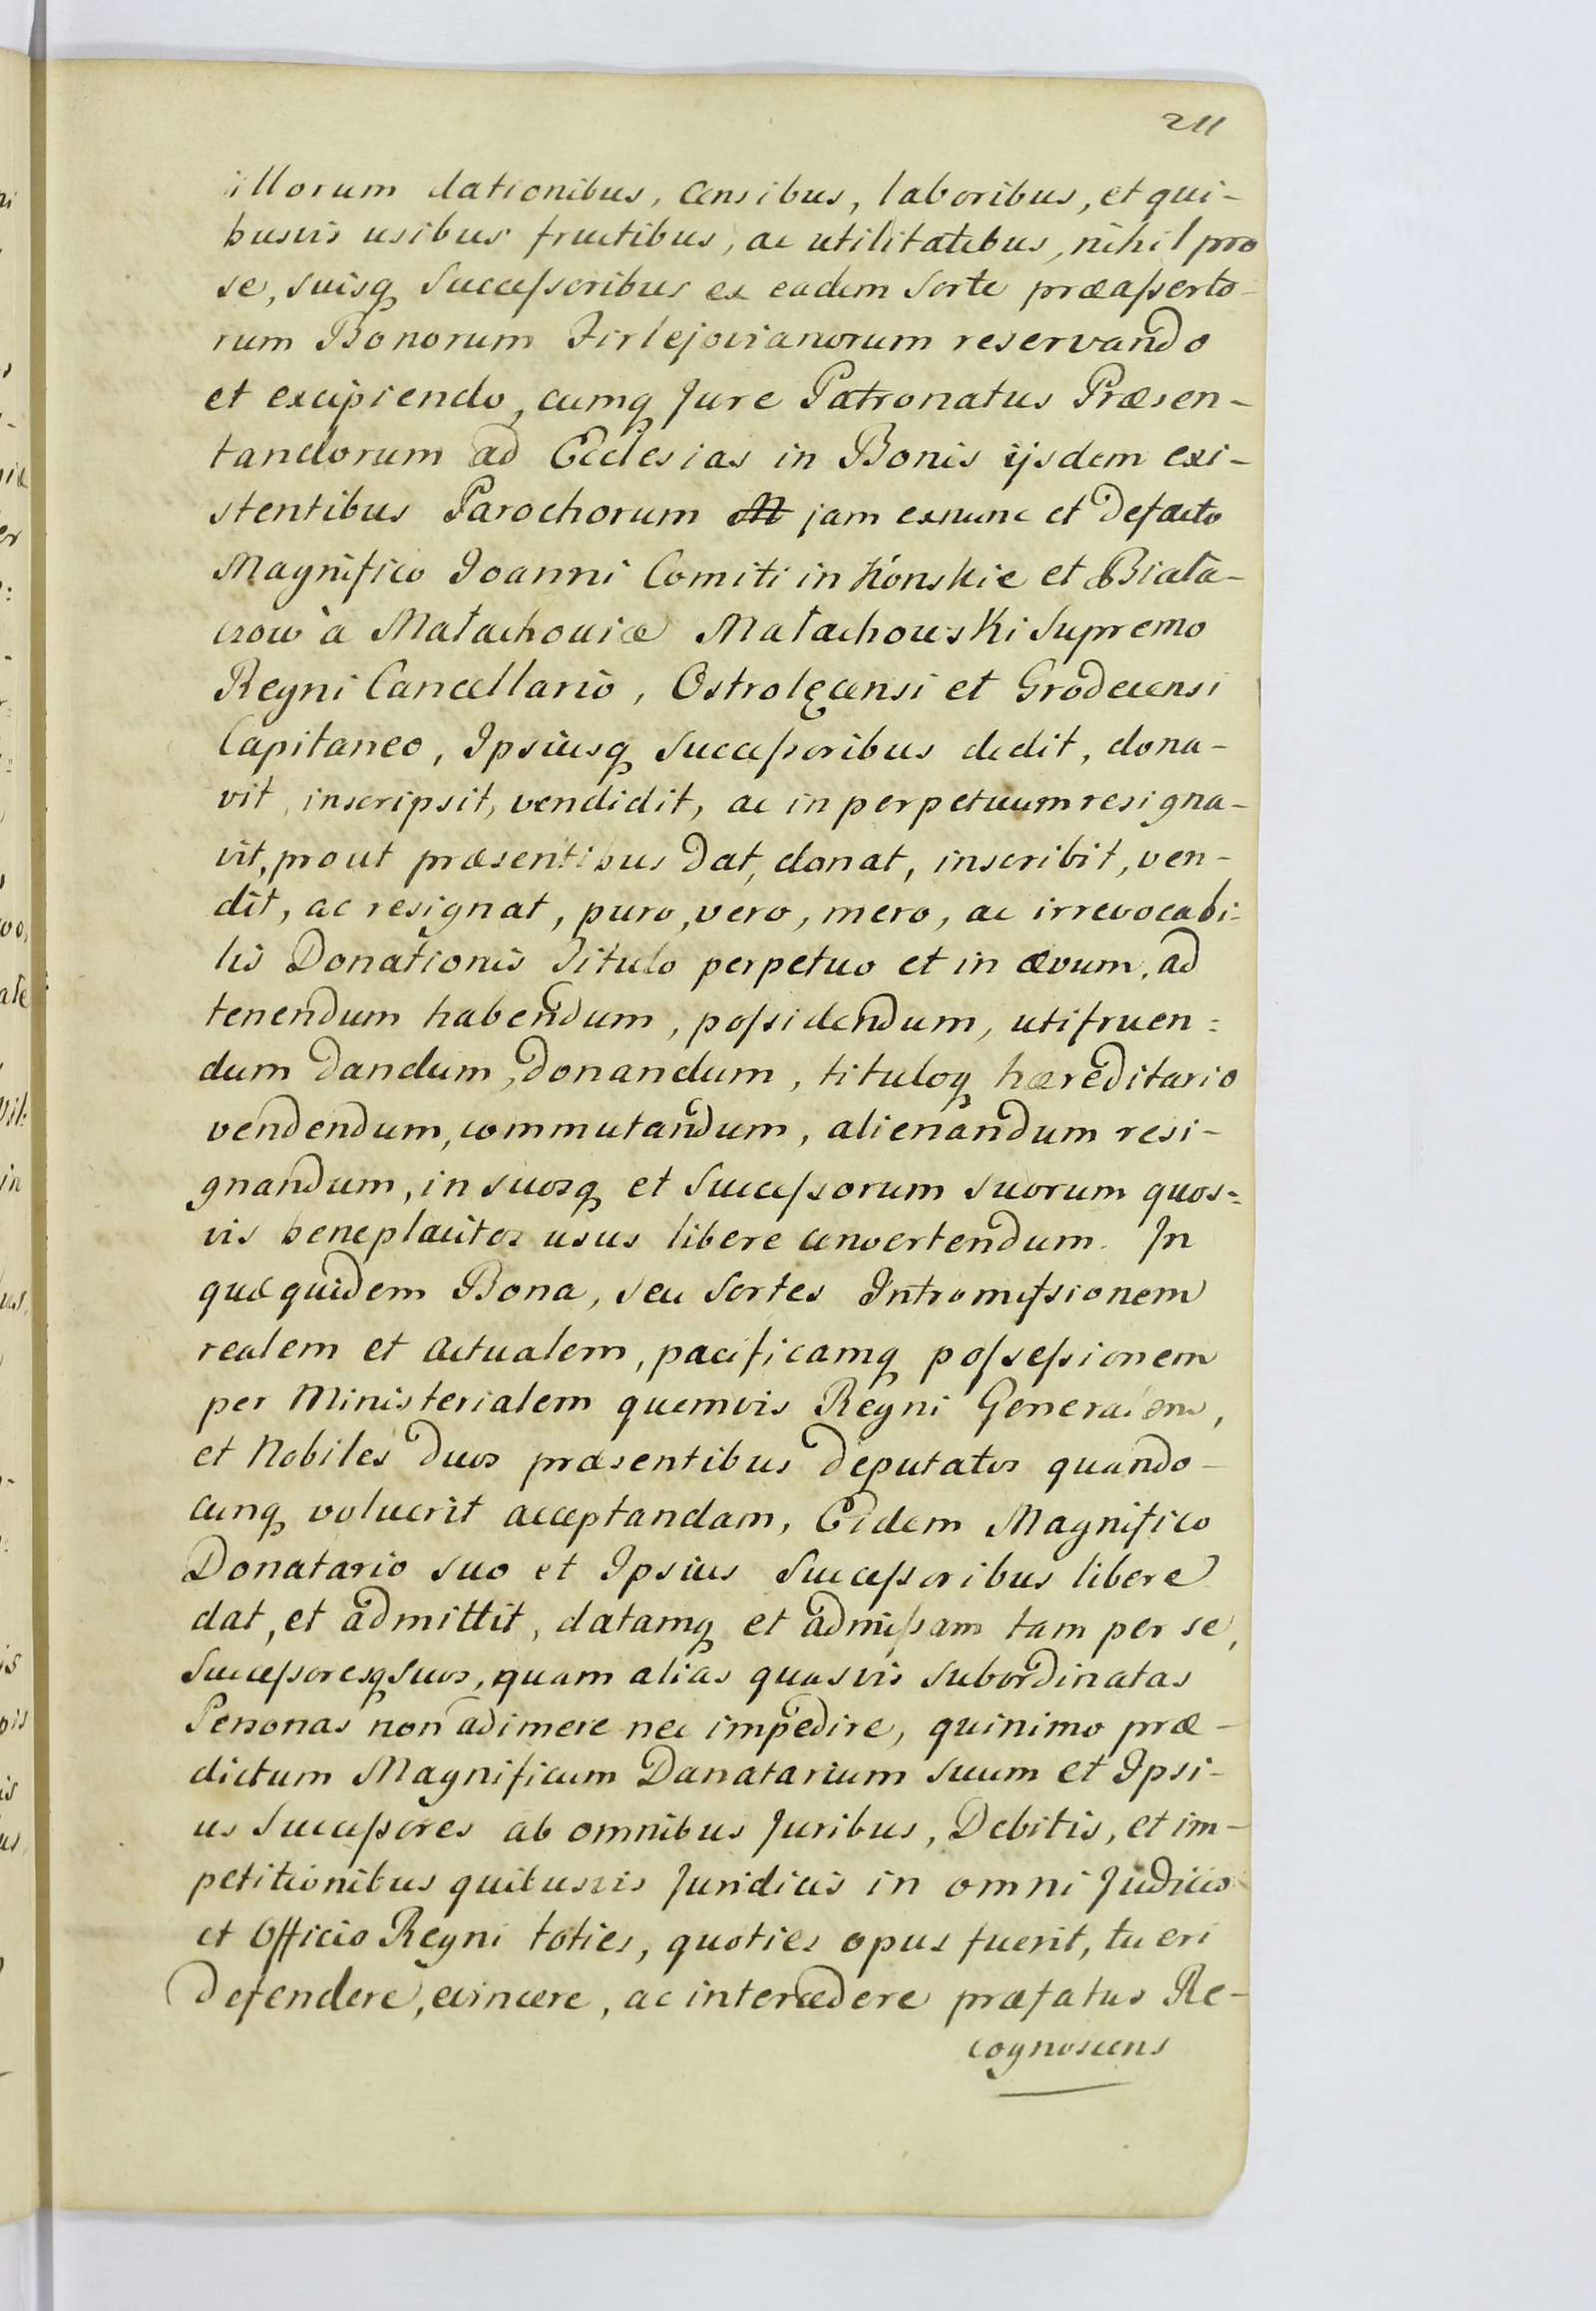 211
illorum dationibus, censibus, laboribus, et qui-
busvis usibus fructibus, ac utilitatibus, nihil pro
se, suisq successoribus ex eadem Sorte præasserto-
rum Bonorum Firlejovianorum reservando
et excipiendo, cumq Jure Patronatus Præsen-
tandorum ad Ecclesias in Bonis ijsdem exi-
stentibus Parochorum jam exnunc et defacto
Magnifico Joanni Comiti in Końskie et Biała-
czow à Małachovice Małachowski Supremo
Regni Cancellario, Ostrolęcensi et Grodecensi
Capitaneo, Ipsiusq Successoribus dedit, dona-
vit, inscripsit, vendidit, ac in perpetuum resigna-
vit, prout præsentibus dat, donat, inscribit, ven-
dit, ac resignat, puro, vero, mero, ac irrevocabi=
lis Donationis Titulo perpetuo et in ævum, ad
tenendum habendum, possidendum, utifruen=
dum dandum, donandum, tituloq hæreditario
vendendum, commutandum, alienandum resi-
gnandum, in suosq et Successorum suorum quos=
vis beneplacitos usus libere convertendum. In
quæ quidem Bona, seu Sortes Intromissionem
realem et actualem, pacificamq possessionem
per Ministerialem quemvis Regni Generalem,
et Nobiles duos præsentibus deputatos quando-
cunq voluerit acceptandam, Eidem Magnifico
Donatario suo et Ipsius Successoribus libere
dat, et admittit, datamq et admissam tam per se,
Successoresq Suos, quam alias quasvis subordinatas
Personas non adimere nec impedire, quinimo præ-
dictum Magnificum Danatarium suum et Ipsi-
us Successores ab omnibus Juribus, Debitis, et im-
petitionibus quibusvis Juridicis in omni Judicio
et Officio Regni toties, quoties opus fuerit, tueri
defendere, evincere, ac intercedere præfatus Re-
cognoscens